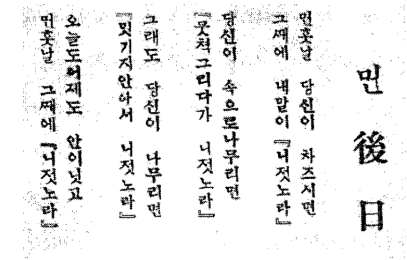 먼 後日
먼훗날 당신이 차즈시면
그때에 내말이 『니젓노라』
당신이 속으로나무리면
『뭇쳐그리다가 니젓노라』
그래도 당신이 나무리면
『밋기지안아서 니젓노라』
오늘도어제도 안이닛고
먼훗날 그때에 『니젓노라』